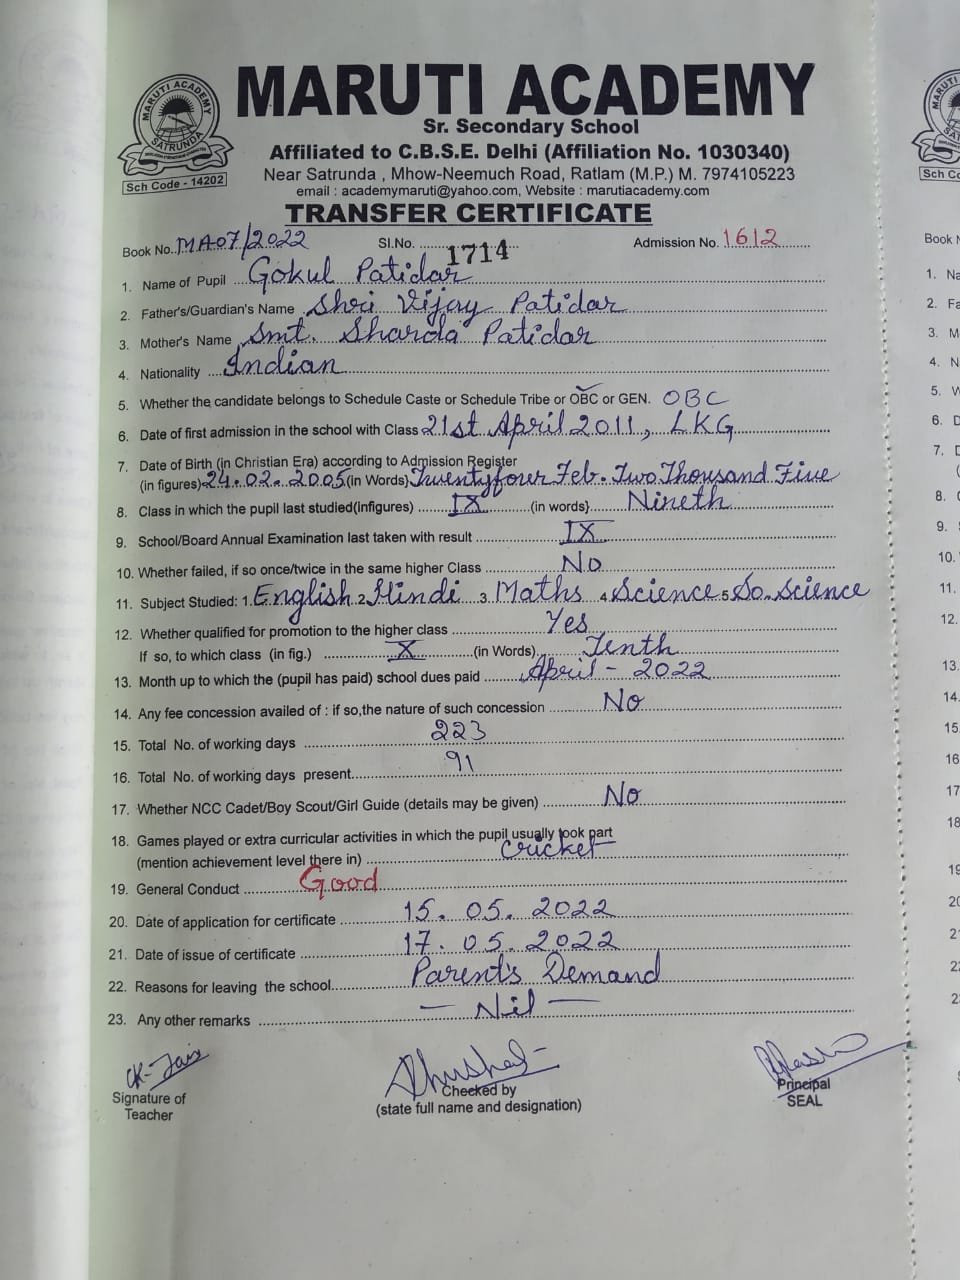 MARUTI ACADEMY
Sr. Secondary School
Affiliated to C.B.S.E. Delhi (Affiliation No. 1030340)
Near Satrunda , Mhow-Neemuch Road, Ratlam (M.P.) M. 7974105223
email : academymaruti@yahoo.com, Website : marutiacademy.com
MARUTI ACADEMY
SATRUNDA
Sch Code - 14202
TRANSFER CERTIFICATE
Book No. MA07/2022 Sl.No. 1714 Admission No. 1612
1. Name of Pupil Gokul Patidar
2. Father's/Guardian's Name Shri Vijay Patidar
3. Mother's Name Smt. Sharda Patidar
4. Nationality Indian
5. Whether the candidate belongs to Schedule Caste or Schedule Tribe or OBC or GEN. OBC
6. Date of first admission in the school with Class 21st April 2011, LKG
7. Date of Birth (in Christian Era) according to Admission Register
(in figures) 24.02.2005 (in Words) Twentyfour Feb. Two Thousand Five
8. Class in which the pupil last studied(infigures) IX (in words} Nineth
9. School/Board Annual Examination last taken with result IX
10. Whether failed, if so once/twice in the same higher Class No
11. Subject Studied: 1. English 2. Hindi 3. Maths 4. Science 5. So. Science
12. Whether qualified for promotion to the higher class Yes
If so, to which class (in fig.) X (in Words) Tenth
13. Month up to which the (pupil has paid) school dues paid April - 2022
14. Any fee concession availed of : if so,the nature of such concession No
15. Total No. of working days 223
16. Total No. of working days present 91
17. Whether NCC Cadet/Boy Scout/Girl Guide (details may be given) No
18. Games played or extra curricular activities in which the pupil usually took part
(mention achievement level there in) Cricket
19. General Conduct Good
20. Date of application for certificate 15.05.2022
21. Date of issue of certificate 17.05.2022
22. Reasons for leaving the school Parent's Demand
23. Any other remarks — Nil —
Signature of
Teacher
Checked by
(state full name and designation)
Principal
SEAL
Sch Co
Book N
1. Na
2. Fa
3. M
4. N
5. W
6. D
7. D
8.
9.
10.
11.
12.
13.
14.
15.
16
17
18
19
20
2
22
2